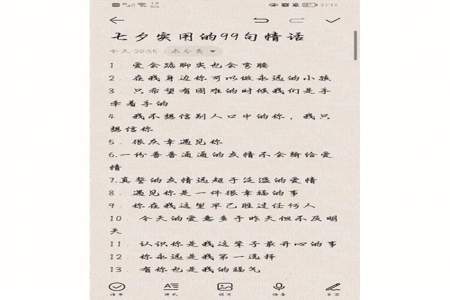 七夕实用的99句情话
今天 20:55 未分类
1. 爱会踮脚实也会弯腰
2. 在我身边你可以做永远的小孩
3. 只希望有困难的时候我们是手
牵着手的
4. 我不想信别人口中的你,我只
想信你
5. 很庆幸遇见你
6.一份普普通通的真情不会输给爱
情
7.真挚的真情远超于泛滥的爱情
8. 遇见你是一件很幸福的事
9. 你在我这里早已胜过任何人
10. 今天的爱意多于昨天但不及明
天
11. 认识你是我这辈子最开心的事
12. 你永远是我第一选择
13. 有你也是我的福气
清单
样式
图片
语音
手写